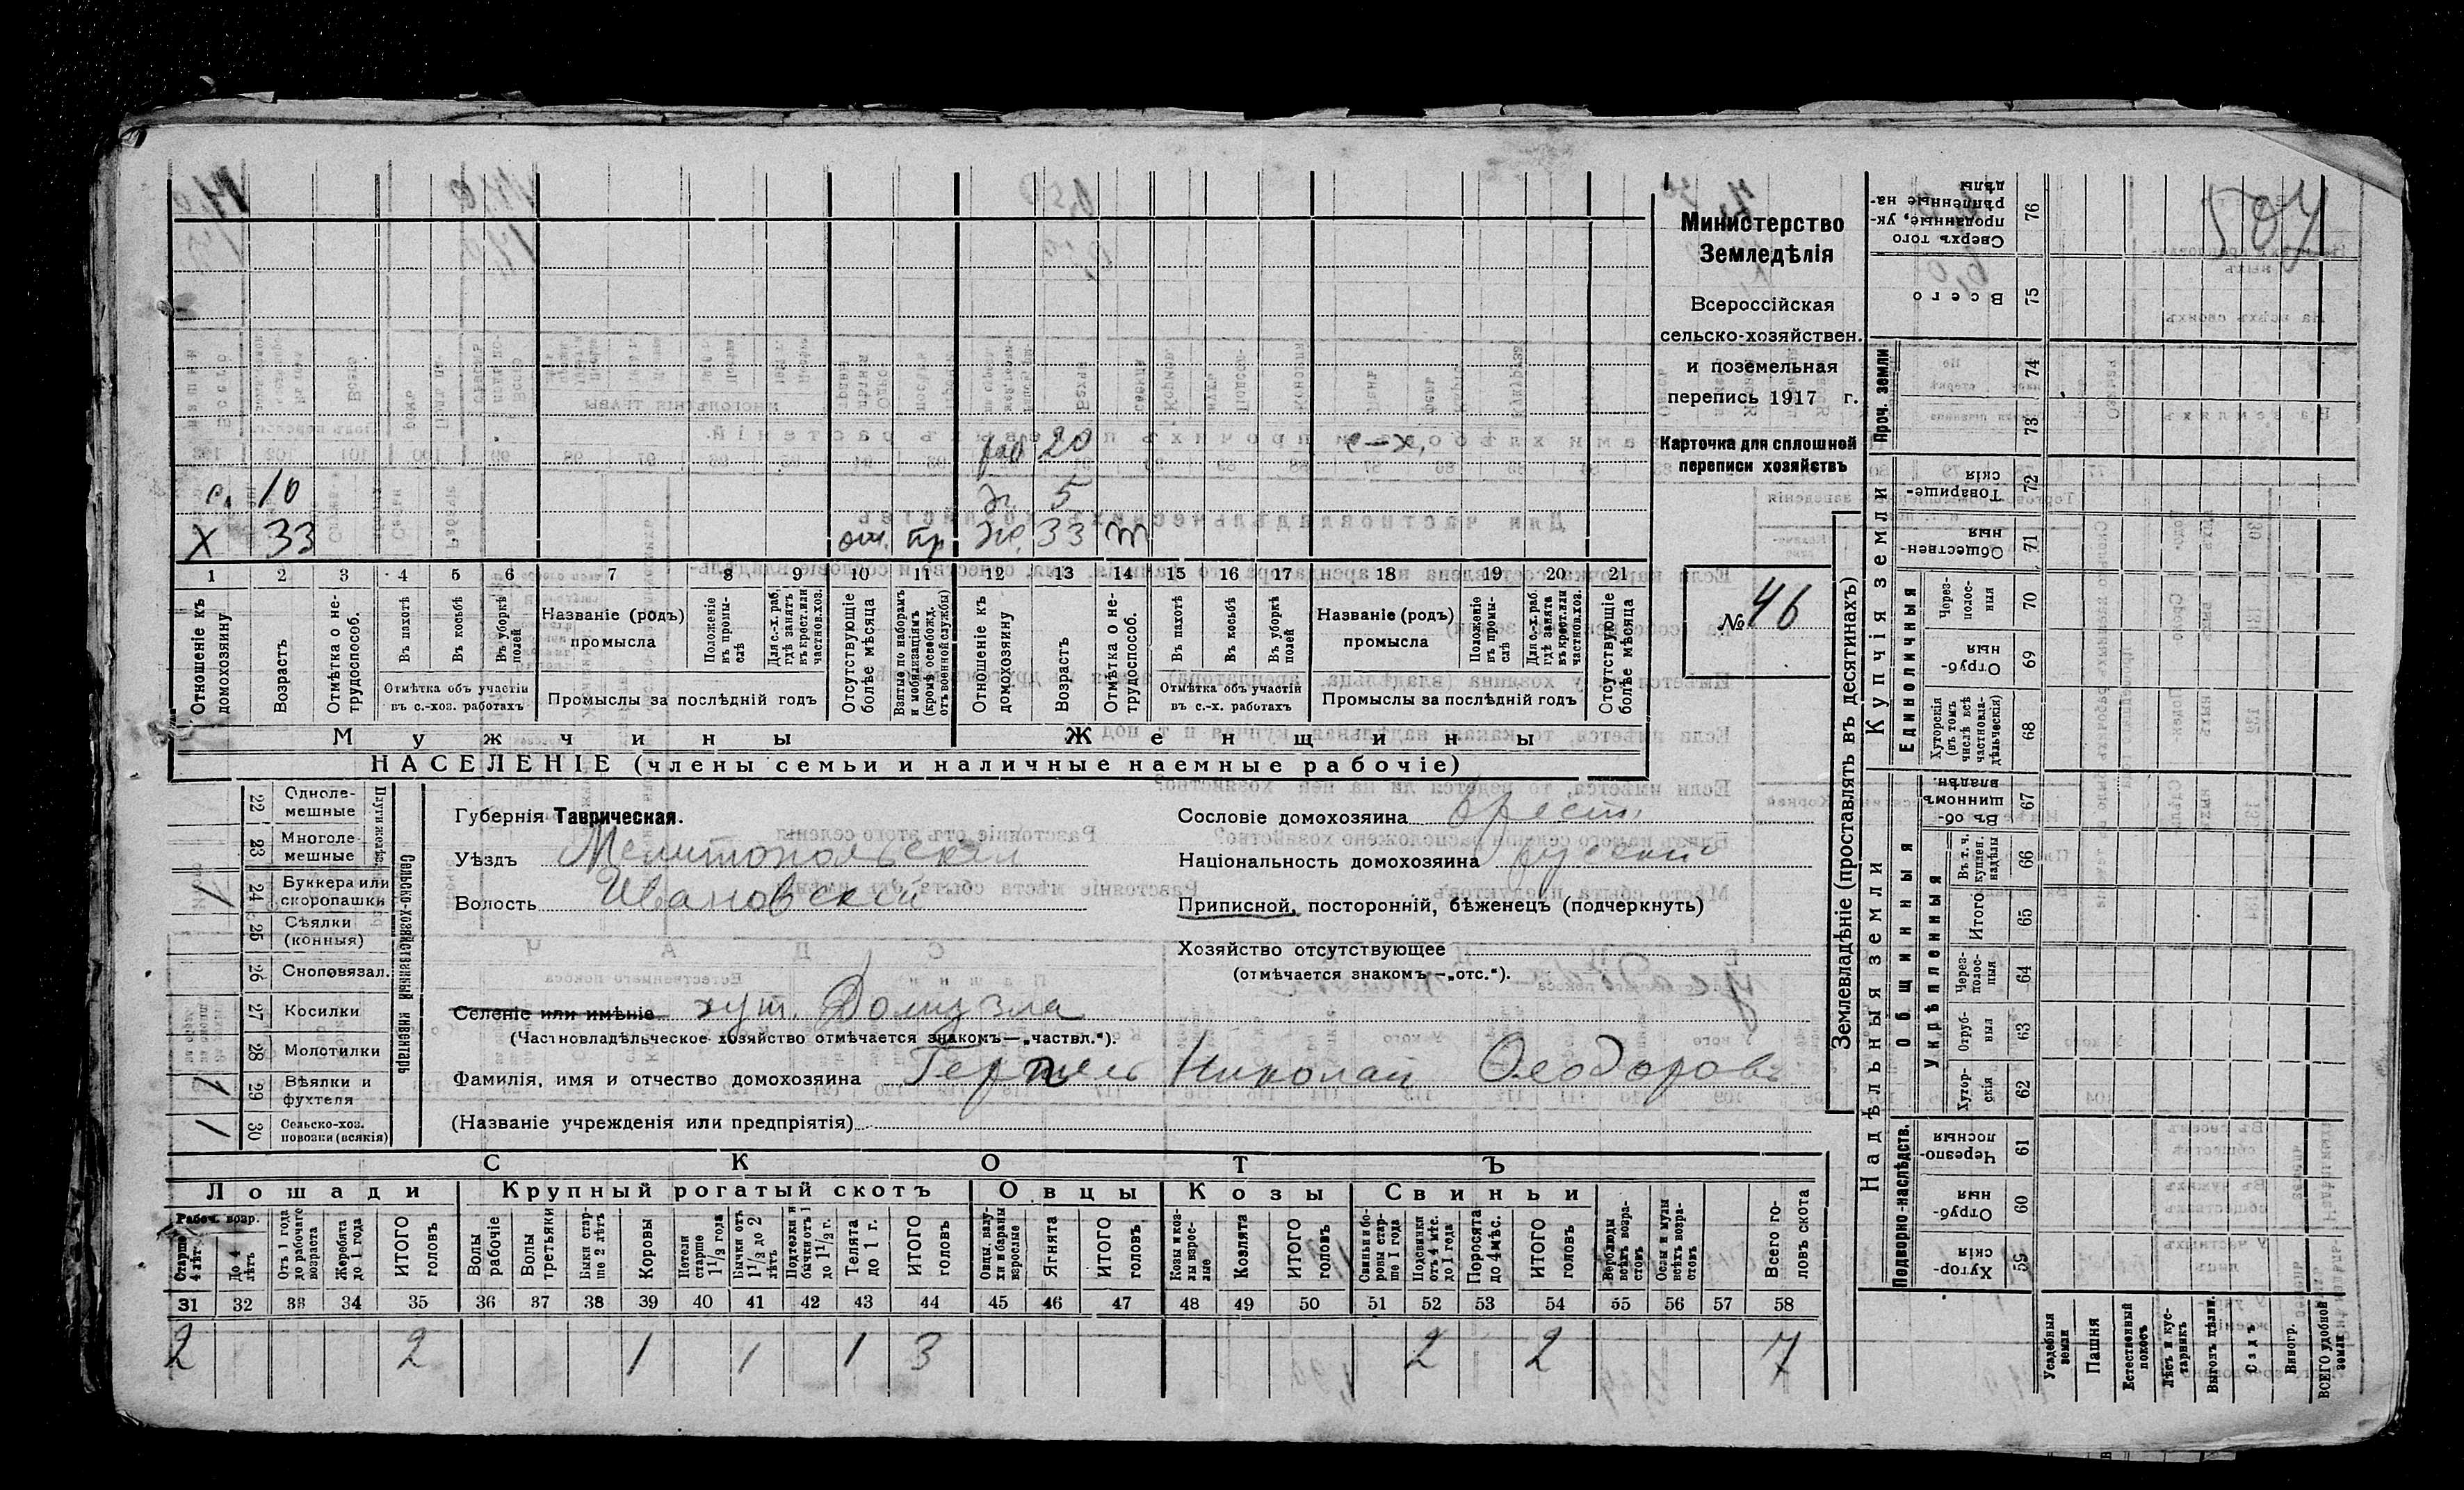 504
Министерство
Земледѣлія
Всероссійская
сельско-хозяйствен.
и поземельная
перепись 1917 г.
Карточка для сплошной
переписи хозяйствъ
№ 46
раб 20 с-х.
с. 10 д. 5
х 33 от. пр ж. 33 т
1 2 3 4 5 6 7 8 9 10 11 12 13 14 15 16 17 18 19 20 21
Отношеніе къ домохозяину
Возрастъ
Отмѣтка о нетрудоспособ.
Въ пахотѣ
Въ косьбѣ
Въ уборкѣ полей
Отмѣтка объ участіи въ с.-хоз. работахъ
Названіе (родъ) промысла
Положеніе въ промыслѣ
Для с.-х. раб. гдѣ занятъ въ крест. или частнов. хоз.
Промыслы за послѣдній годъ
Отсутствующіе болѣе мѣсяца
Взятые по наборамъ и мобилизаціямъ (кромѣ освобожд. отъ военной службы)
Отношеніе къ домохозяину
Возрастъ
Отмѣтка о нетрудоспособ.
Въ пахотѣ
Въ косьбѣ
Въ уборкѣ полей
Отмѣтка объ участіи въ с.-х. работахъ
Названіе (родъ) промысла
Положеніе въ промыслѣ
Для с.-х. раб. гдѣ занята въ крест. или частнов. хоз.
Промыслы за послѣдній годъ
Отсутствующіе болѣе мѣсяца
Мужчины Женщины
НАСЕЛЕНІЕ (члены семьи и наличные наемные рабочіе)
22 Однолемешные
23 Многолемешные
1 24 Буккера или скоропашки
25 Сѣялки (конныя)
26 Сноповязал.
27 Косилки
28 Молотилки
1 29 Вѣялки и фухтеля
1 30 Сельско-хоз. повозки (всякія)
Сельско-хозяйственный инвентарь
Губернія Таврическая.
Уѣздъ Мелитопольскій
Волость Ивановской
Селеніе или имѣніе хут. Домузла
(Частновладѣльческое хозяйство отмѣчается знакомъ—„частвл.“).
Фамилія, имя и отчество домохозяина Николай Ѳеодоровъ
(Названіе учрежденія или предпріятія)
Сословіе домохозяина крест.
Національность домохозяина русскій
Приписной, посторонній, бѣженецъ (подчеркнуть)
Хозяйство отсутствующее
(отмѣчается знакомъ—„отс.“).
СКОТЪ
Лошади Крупный рогатый скотъ Овцы Козы Свиньи
Рабоч. возр.
Старше 4 лѣтъ
До 4 лѣтъ
Отъ 1 года до рабочаго возраста
Жеребята до 1 года
ИТОГО головъ
Волы рабочіе
Волы третьяки
Быки старше 2 лѣтъ
Коровы
Нетели старше 1 1/2 года
Бычки отъ 1 1/2 до 2 лѣтъ
Подтелки и бычки отъ 1 до 1 1/2 г.
Телята до 1 г.
ИТОГО головъ
Овцы, валухи и бараны взрослые
Ягнята
ИТОГО головъ
Козы и козлы взрослые
Козлята
ИТОГО головъ
Свиньи и боровы старше 1 года
Подсвинки отъ 4 мѣс. до 1 года
Поросята до 4 мѣс.
ИТОГО головъ
Верблюды всѣхъ возрастовъ
Ослы и мулы всѣхъ возрастовъ
Всего головъ скота
31 32 33 34 35 36 37 38 39 40 41 42 43 44 45 46 47 48 49 50 51 52 53 54 55 56 57 58
2 2 1 1 1 3 2 2 7
Землевладѣніе (проставлять въ десятинахъ)
Надѣльныя земли Купчія земли Проч. земли
Подворно-наслѣдств. Общинныя Единоличныя
Укрѣпленныя
Сверхъ того проданные, укрѣпленные надѣлы 76
Всего 75
74
73
Товарищескія 72
Общественныя 71
Черезполосныя 70
Отрубныя 69
Хуторскія (въ томъ числѣ всѣ частновладѣльческія) 68
Въ общинномъ владѣн. 67
Въ т. ч. куплен. надѣлы 66
Итого 65
Черезполосныя 64
Отрубныя 63
Хуторскія 62
Черезполосныя 61
Отрубныя 60
Хуторскія 59
Усадебныя земли
Пашня
Естественный покосъ
Лѣсъ и кустарникъ
Выгонъ цѣлин.
Садъ
Виногр.
ВСЕГО удобной земли